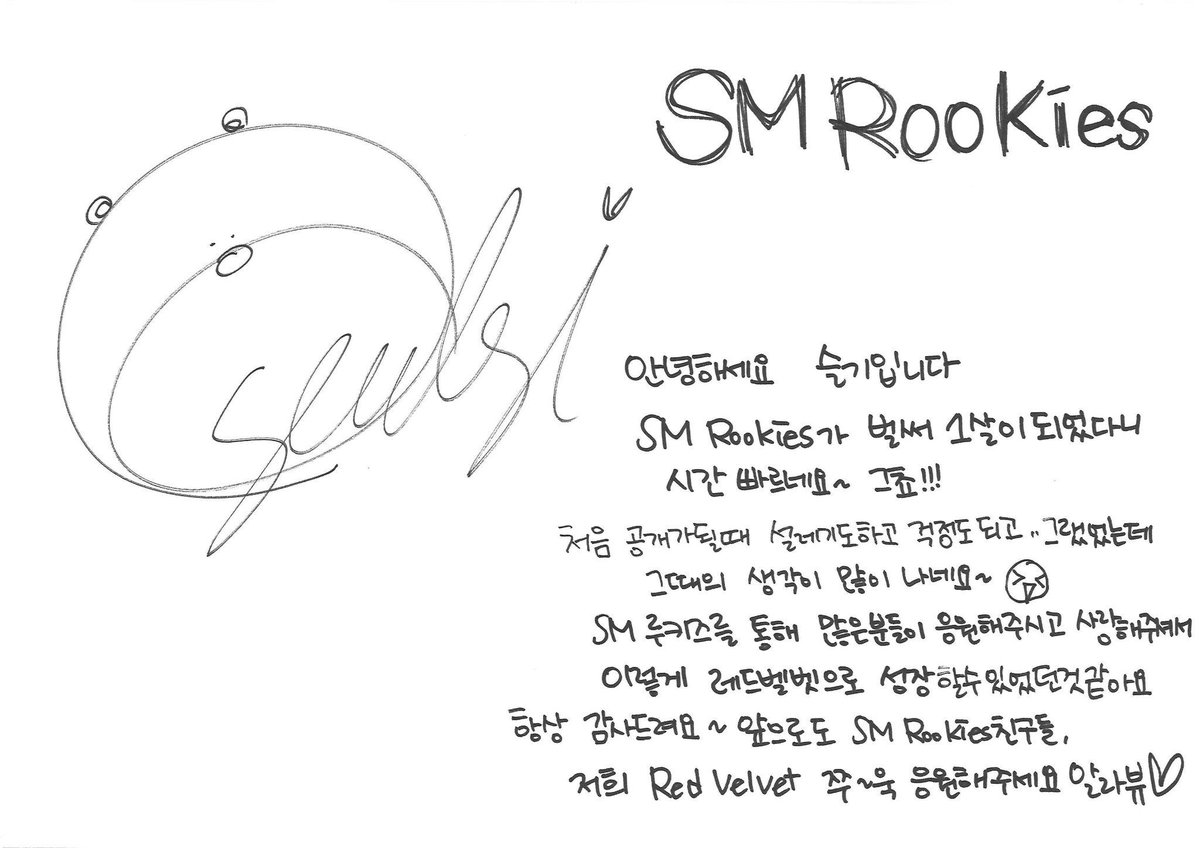 SM Rookies
seulgi
안녕하세요 슬기입니다
SM Rookies가 벌써 1살이 되었다니
시간 빠르네요~ 그쵸!!!
처음 공개가될때 설레기도하고 걱정도되고..그랬었는데
그때의 생각이 많이 나네요~
SM 루키즈를 통해 많은분들이 응원해주시고 사랑해주셔서
이렇게 레드벨벳으로 성장할수있었던것같아요
항상 감사드려요~ 앞으로도 SM Rookies친구들,
저희 Red Velvet 쭈~욱 응원해주세요 알라뷰♡